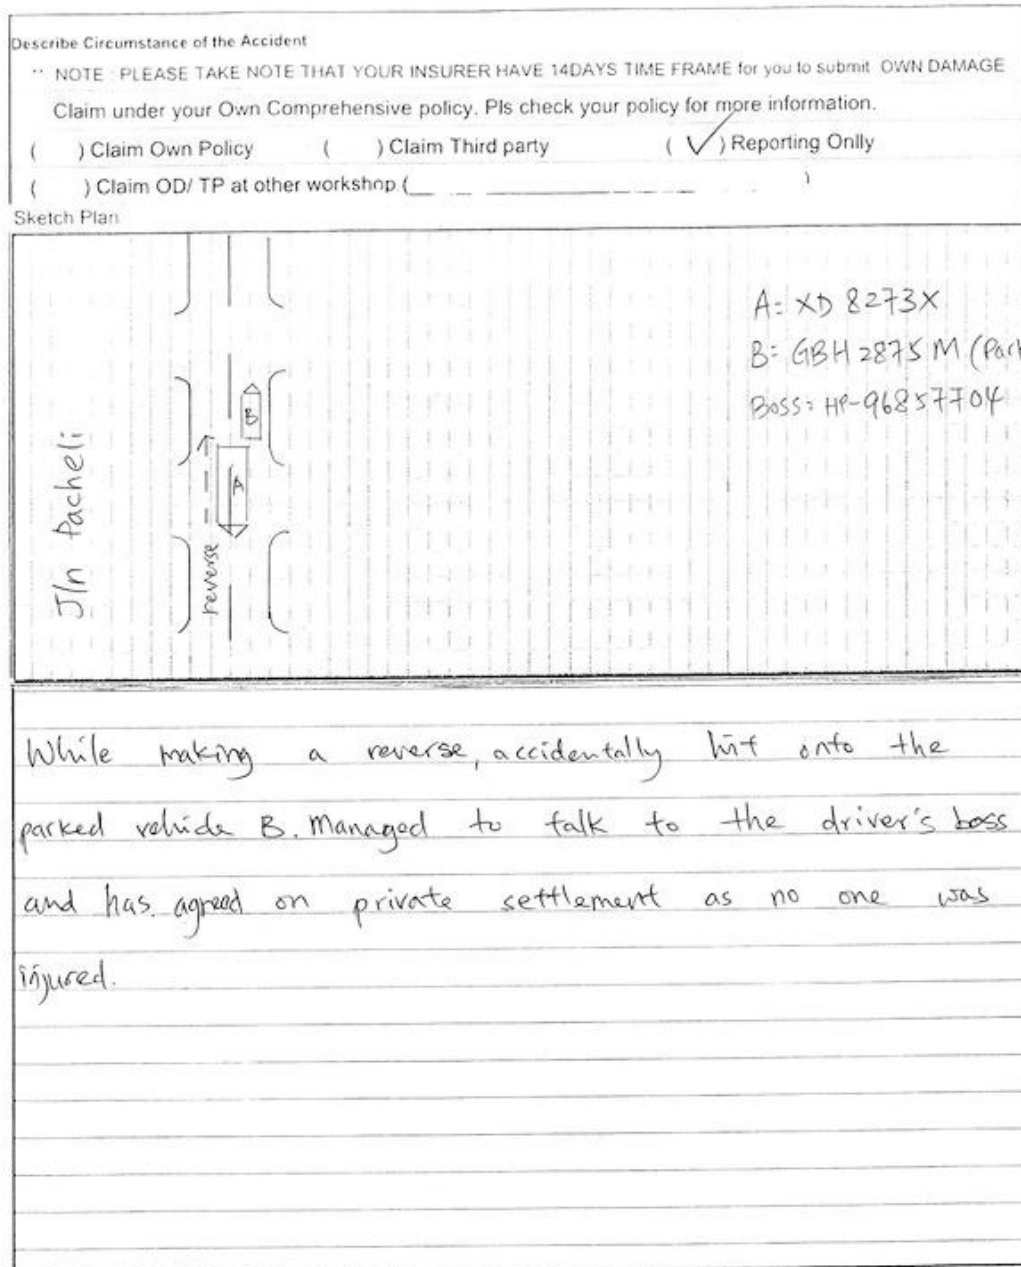 Describe Circumstance of the Accident
** NOTE : PLEASE TAKE NOTE THAT YOUR INSURER HAVE 14DAYS TIME FRAME for you to submit OWN DAMAGE
Claim under your Own Comprehensive policy. Pls check your policy for more information.
( ) Claim Own Policy ( ) Claim Third party ( ✓ ) Reporting Onlly
( ) Claim OD/ TP at other workshop ( )
Sketch Plan
A= XD 8273X
B= GBH 2875 M (Park
Boss= HP-96857704
B
A
Jln Pacheli
reverse
While making a reverse, accidentally hit onto the
parked vehicle B. Managed to talk to the driver's boss
and has agreed on private settlement as no one was
injured.